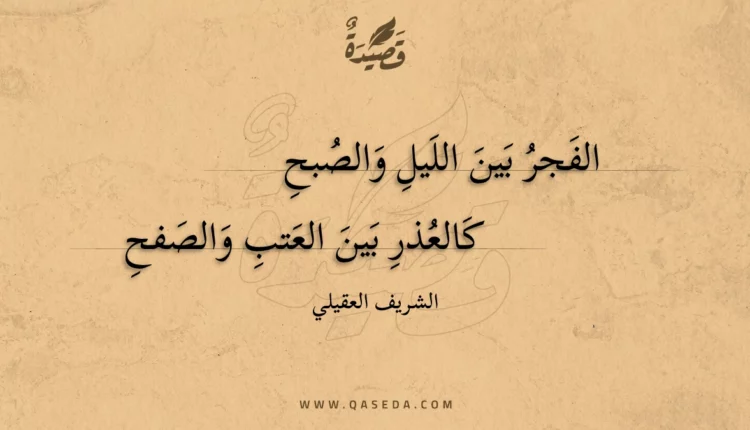 قَصِيدَةٌ
الفَجرُ بَينَ اللَيلِ وَالصُبحِ
كَالعُذرِ بَينَ العَتبِ وَالصَفحِ
الشريف العقيلي
WWW.QASEDA.COM